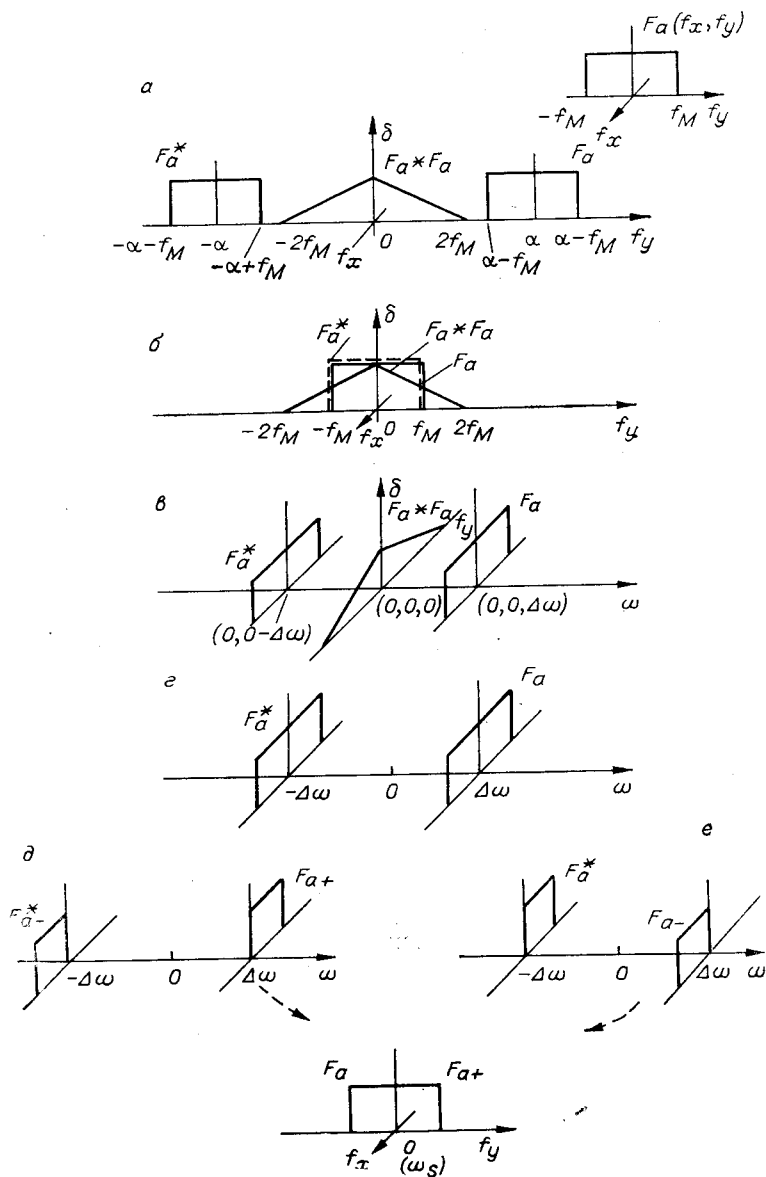 Fa(fx, fy)
а
-fM fx fM fy
Fa* δ Fa*Fa Fa
-α-fM -α -α+fM -2fM fx 0 2fM α-fM α α-fM fy
б Fa* δ Fa*Fa Fa
-2fM -fM fx 0 fM 2fM fy
в Fa* δ Fa*Fa fy Fa
(0,0-Δω) (0,0,0) (0,0,Δω) ω
г Fa* Fa
-Δω 0 Δω ω
д е
Fa-* Fa+ Fa* Fa-
-Δω 0 Δω ω -Δω 0 Δω ω
Fa Fa+
fx 0 fy
(ωs)